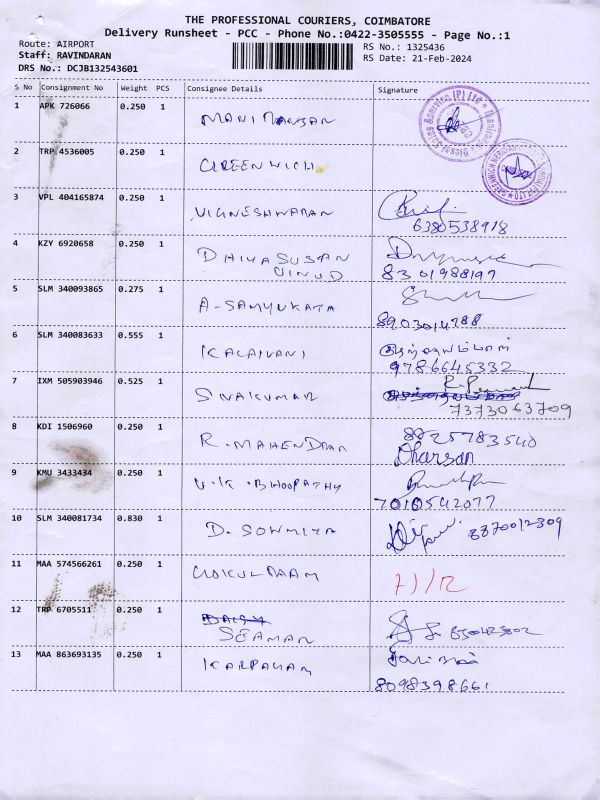 THE PROFESSIONAL COURIERS, COIMBATORE
Delivery Runsheet - PCC - Phone No.:0422-3505555 - Page No.:1
Route: AIRPORT RS No.: 1325436
Staff: RAVINDARAN RS Date: 21-Feb-2024
DRS No.: DCJB132543601
S No Consignment No Weight PCS Consignee Details Signature
1 APK 726066 0.250 1 MANIMARAN
2 TRP 4536005 0.250 1 GREENWICH
3 VPL 404165874 0.250 1 VIGNESHWARAN
6380538918
4 KZY 6920658 0.250 1 DHIYA SUSAN
VINUD 8301988197
5 SLM 340093865 0.275 1 A-SAMYUKATA
8903014788
6 SLM 340083633 0.555 1 KALAIVANI
9786645332
7 IXM 505903946 0.525 1 SIVAKUMAR
7373063709
8 KDI 1506960 0.250 1 R. MAHENDRAN 8825783540
Dharsan
9 KMU 3433434 0.250 1 V.K. BHOOPATHY
7010542077
10 SLM 340081734 0.830 1 D. SOWMIYA 8870012309
11 MAA 574566261 0.250 1 GOKULRAAM
12 TRP 6705511 0.250 1
SEAMAN
13 MAA 863693135 0.250 1 KARPAGAM
8098398661